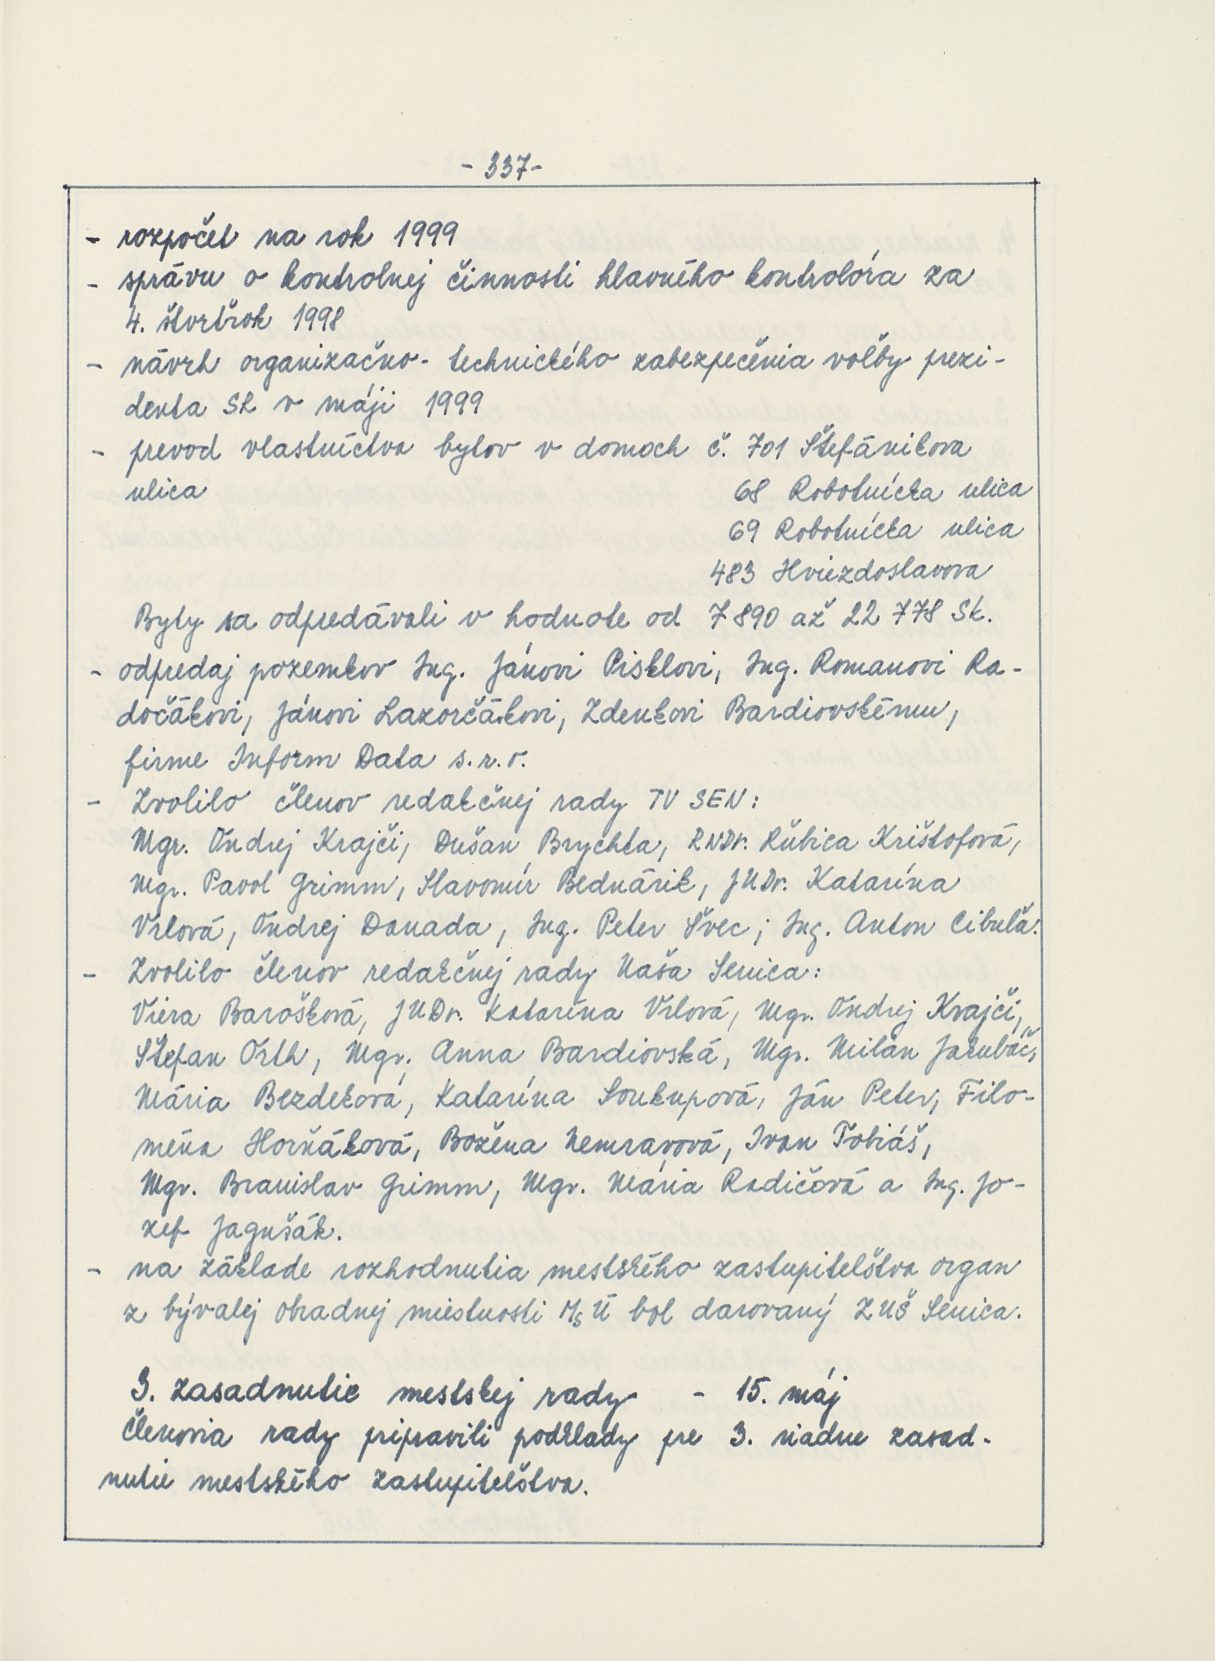 - 337 -
- rozpočet na rok 1999
- správu o kontrolnej činnosti hlavného kontrolóra za
4. štvrťrok 1998
- návrh organizačno - technického zabezpečenia voľby prezi-
denta SR v máji 1999
- prevod vlastníctva bytov v domoch č. 701 Štefánikova
ulica 68 Robotnícka ulica
69 Robotnícka ulica
483 Hviezdoslavova
Byty sa odpredávali v hodnote od 7 890 až 22 778 Sk.
- odpredaj pozemkov Ing. Jánovi Pisklovi, Ing. Romanovi Ra-
dočákovi, Jánovi Lazorčákovi, Zdenkovi Bardiovskému,
firme Inform Data s.r.o.
- Zvolilo členov redakčnej rady TV SEN:
Mgr. Ondrej Krajči, Dušan Brychta, RNDr. Ľubica Krištofová,
Mgr. Pavol Grimm, Slavomír Bednárik, JUDr. Katarína
Vrlová, Ondrej Donada, Ing. Peter Švec, Ing. Anton Cibuľa.
- Zvolilo členov redakčnej rady Naša Senica:
Viera Barošková, JUDr. Katarína Vrlová, Mgr. Ondrej Krajči,
Štefan Orth, Mgr. Anna Bardiovská, Mgr. Milan Jakubáč,
Mária Bezdeková, Katarína Soukupová, Ján Peter, Filo-
ména Horňáková, Božena Nemravová, Ivan Tobiáš,
Mgr. Branislav Grimm, Mgr. Mária Radičová a Ing. Jo-
zef Jagušák.
- na základe rozhodnutia mestského zastupiteľstva organ
z bývalej obradnej miestnosti MsÚ bol darovaný ZUŠ Senica.
3. zasadnutie mestskej rady - 15. máj
Členovia rady pripravili podklady pre 3. riadne zasad-
nutie mestského zastupiteľstva.